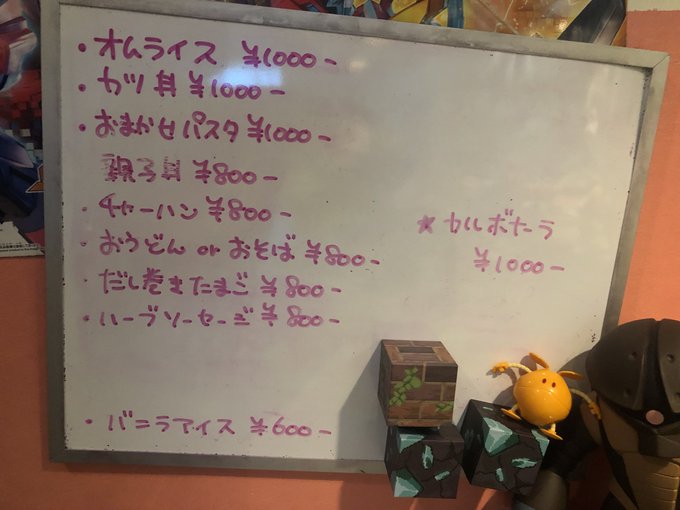 ・オムライス ¥1000-
・カツ丼 ¥1000-
・おまかせパスタ ¥1000-
親子丼 ¥800-
・チャーハン ¥800-
・おうどん or おそば ¥800-
・だし巻きたまご ¥800-
・ハーブソーセージ ¥800-
★カルボナーラ
¥1000-
・バニラアイス ¥600-